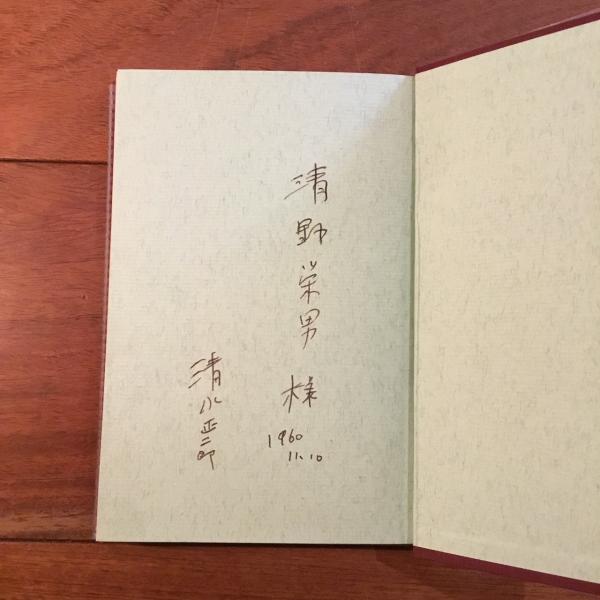 清野栄男 様
1960
11.10
清水正二郎